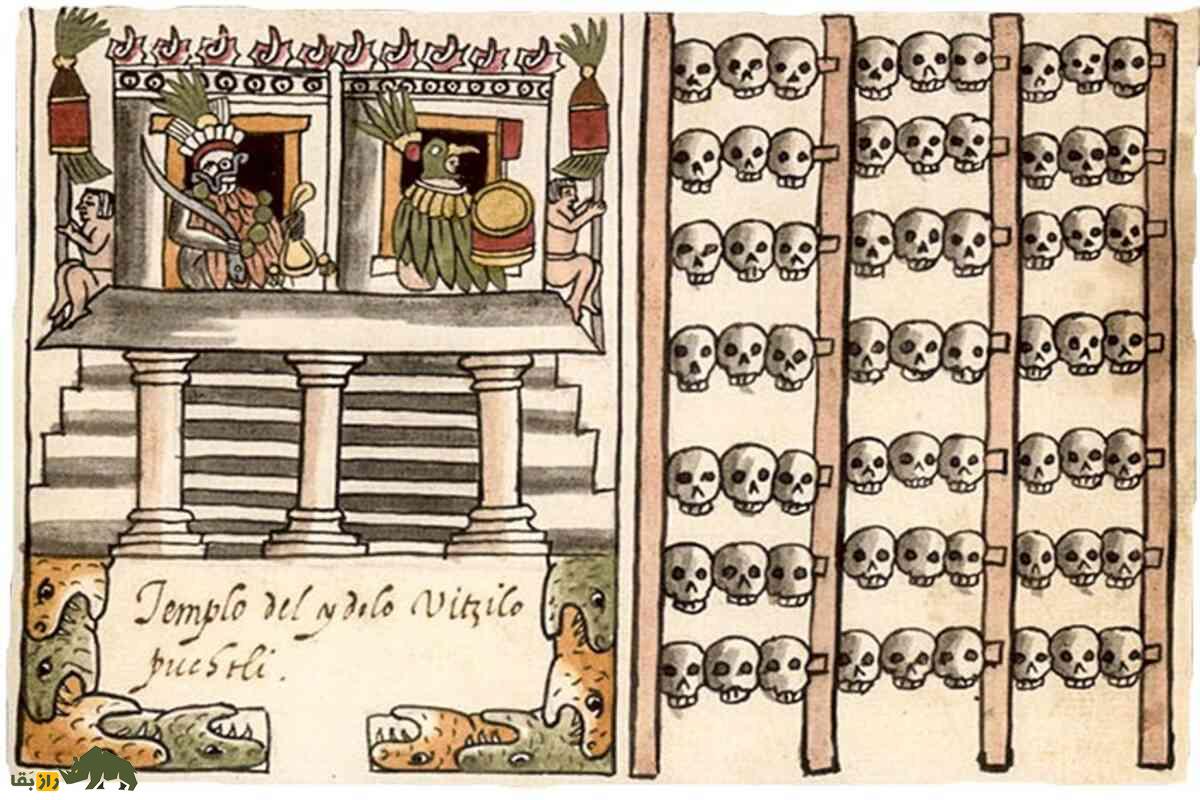 Templo del ydolo Vitzilo
puchtli.
راز بَقا